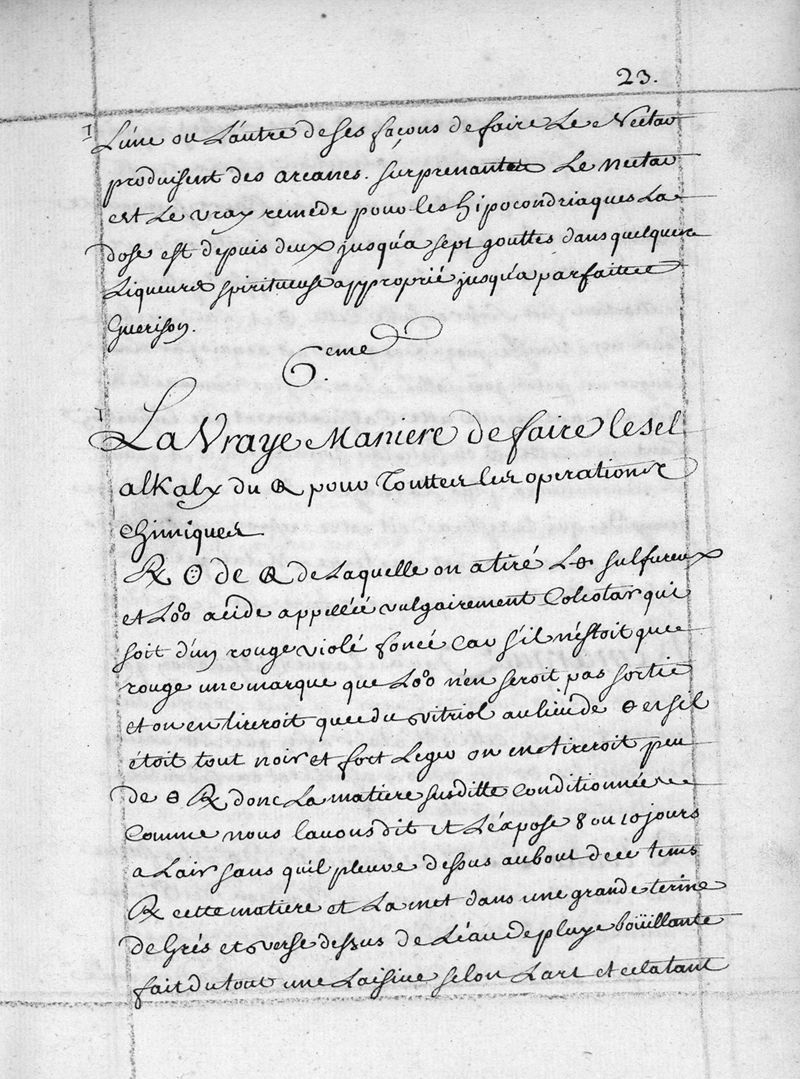 23.
L'une ou L'autre de ses façons de faire Le Nectar
produisent des arcanes. surprenantes Le nectar
est Le vray remede pour les hipocondriaques La
dose est depuis deux jusqu'a sept gouttes dans quelques
Liqueurs spiritueuse approprié jusqu'a parfaite
Guerison.
6.eme
La Vraye Maniere de faire le sel
alkaly du pour Touttes les operations
chimiques
℞ de de Laquelle on a tiré L sulfureux
et L°° acide appellée vulgairement Colcotar qui
soit d'un rouge violé foncé Car s'il n'estoit que
rouge une marque que L°° n'en seroit pas sortie
et on en tireroit que du vitriol au lieu de ϴ et s'il
étoit tout noir et fort Leger on en tireroit peu
de ϴ ℞ donc La matiere susditte Conditionnée
Comme nous l'avons dit et L'expose 8 ou 10 jours
a L'air sans qu'il pleuve dessus au bout de ce tems
℞ cette matiere et La met dans une grande terine
de Grés et verse dessus de L'éau de pluye boüillante
fait du tout une Laisive selon L'art et cela tant